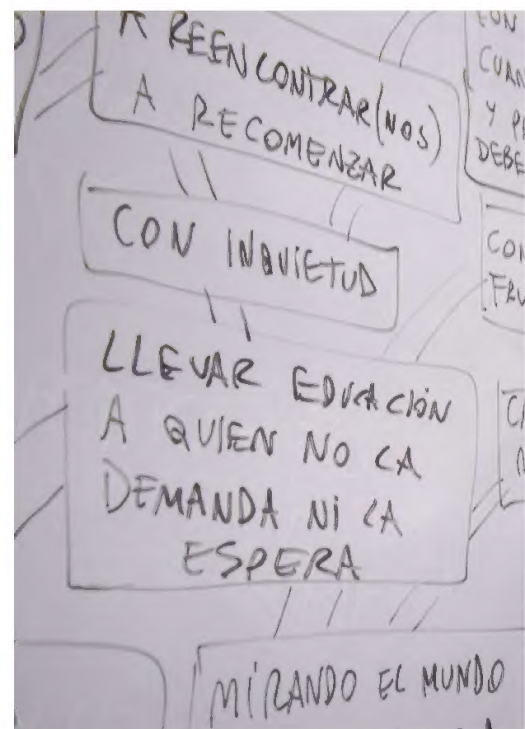 A REENCONTRAR(NOS)
A RECOMENZAR
CON INQUIETUD
LLEVAR EDUCACIÓN
A QUIEN NO LA
DEMANDA NI LA
ESPERA
MIRANDO EL MUNDO
Y